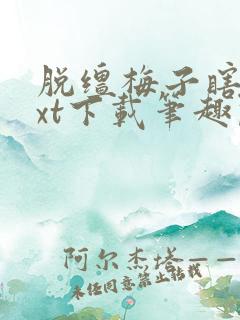 脱缰梅子瞎
xt下载笔趣
阿尔杰塔——
未经同意禁止转载